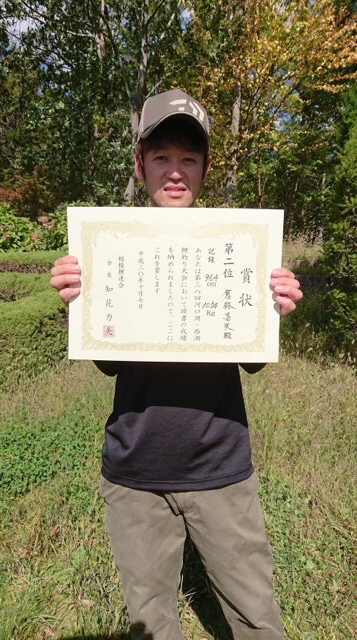 賞状
第二位
殿
記録
cm
Kg
あなたは第三八回河口湖・西湖
鯉釣り大会において頭書の成績
を納められましたので、ここに
これを賞します
平成三〇年十月七日
相模鯉連合
会長 知花 力